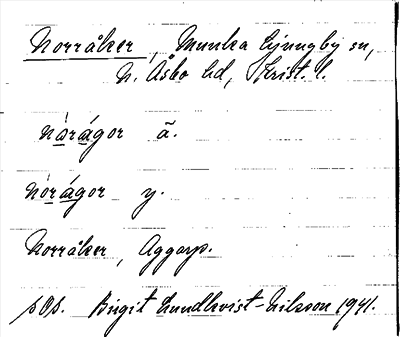 Norråker, Munka Ljungby sn,
N. Åsbo hd, Krist. l.
nòrágor ã.
nòrágor y.
Norråker, Aggarp.
pOp. Birgit Lundkvist-Nilsson 1941.